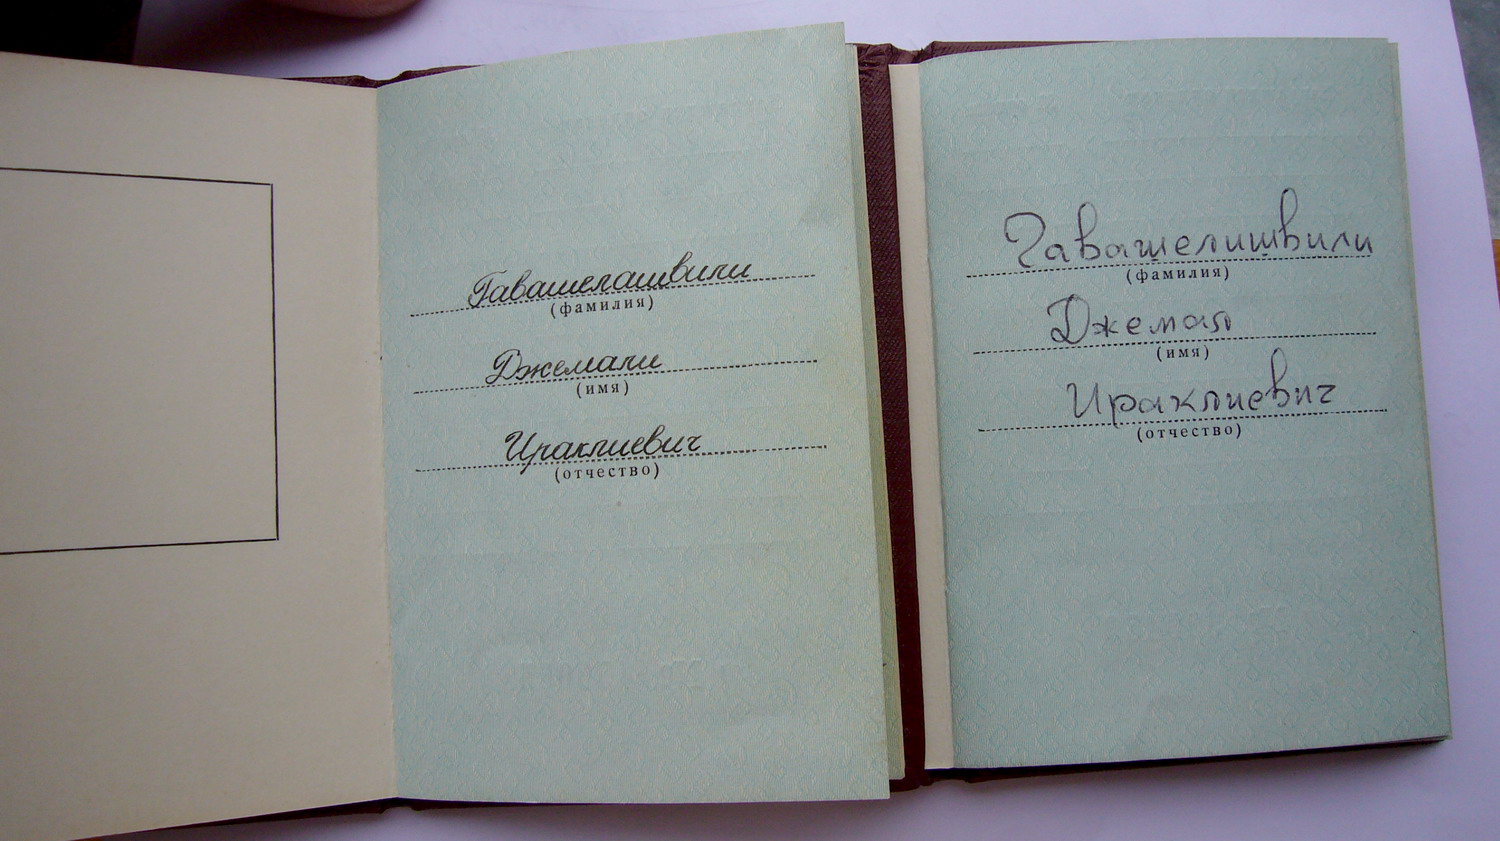 Гавашелашвили
(фамилия)
Джемали
(имя)
Ираклиевич
(отчество)
Гавашелишвили
(фамилия)
Джемал
(имя)
Ираклиевич
(отчество)